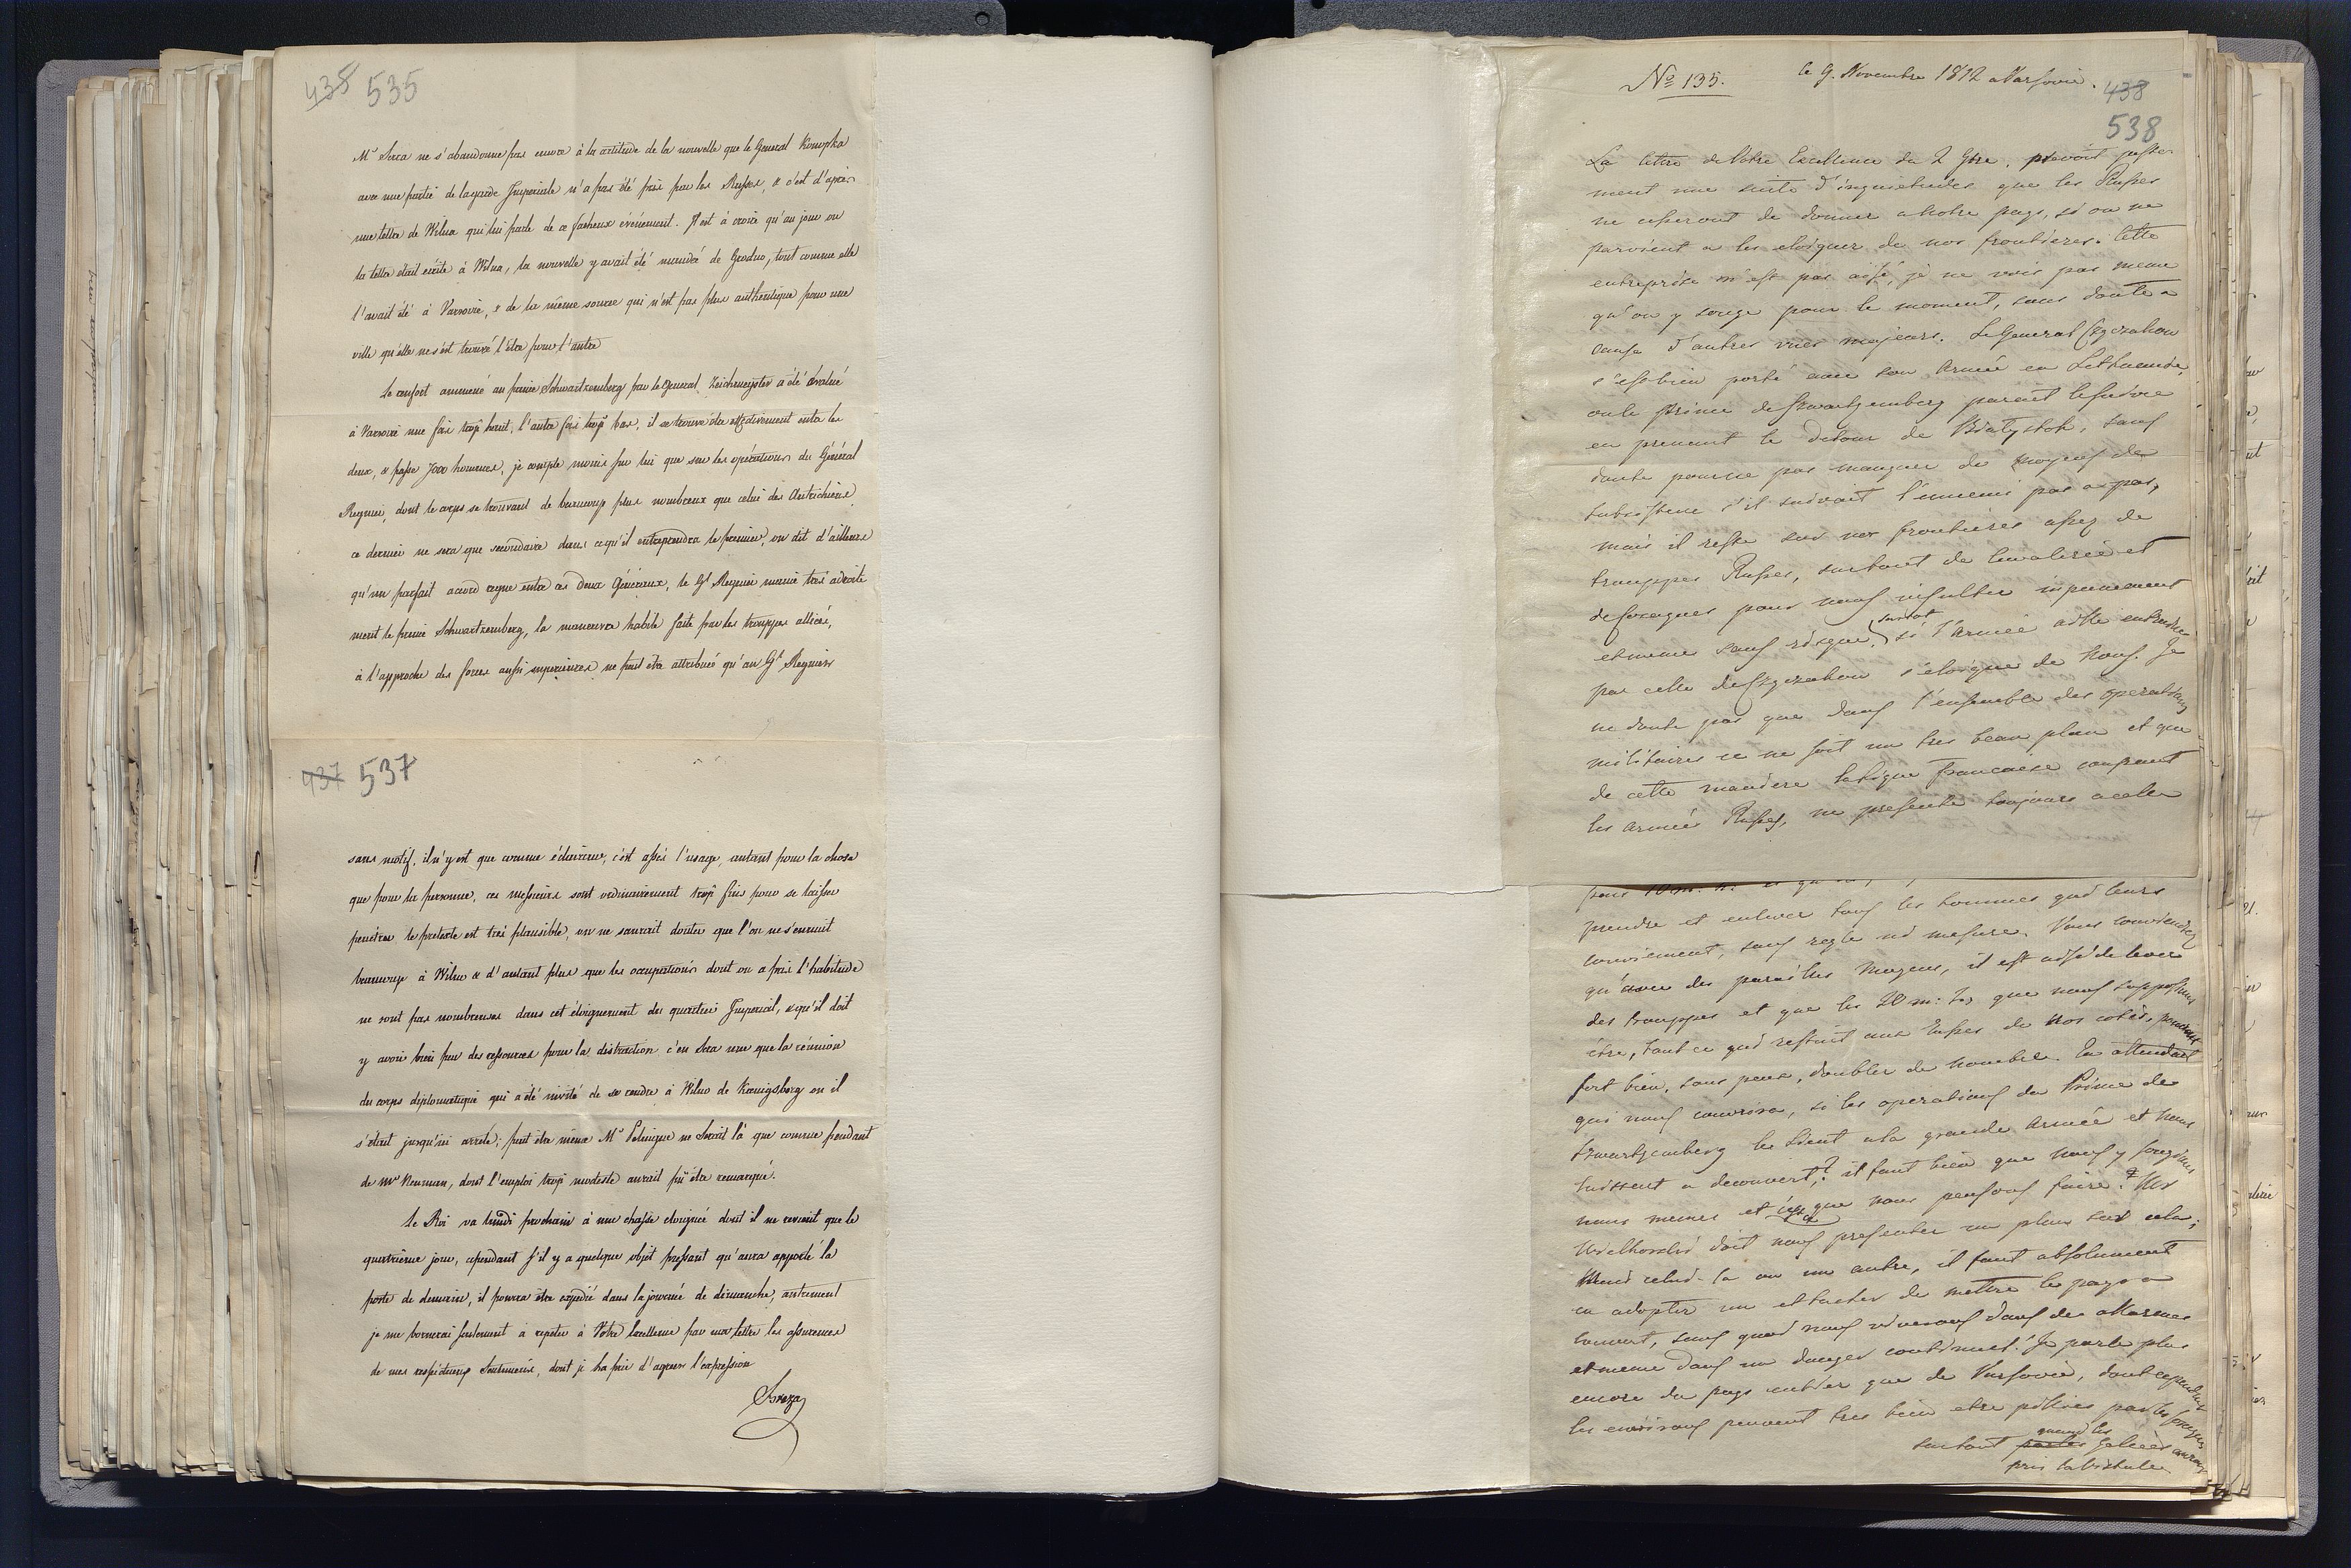 435 535
Mr Serra ne s'abandonne pas encore à la certitude de la nouvelle que le General Konopka
avec une partie de la garde Imperiale n'a pas été pris par les Russes, & c'est d'après
une lettre de Wilna qui lui parle de ce facheux événement. Il est à croire qu'au jour ou
la lettre était écrite à Wilna, la nouvelle y avait été mandée de Grodno, tout comme elle
l'avait été à Varsovie, & de la même source qui n'est pas plus authentique pour une
ville qu'elle ne s'est trouvé l'être pour l'autre
Le renfort ammené au prince Schwartzemberg par le General Reichmeyster a été évalué
à Varsovie une fois trop haut, l'autre fois trop bas, il se trouve être effectivement entre les
deux, & passe 7000 hommes, je compte moins sur lui que sur les opérations du Général
Regnier, dont le corps se trouvant de beaucoup plus nombreux que celui des Autrichiens
ce dernier ne sera que secondaire dans ce qu'il entreprendra le premier, on dit d'ailleurs
qu'un parfait accord regne entre ces deux Généraux, le Gl Regnier manie très adroite
ment le prince Schwartzemberg, la manoeuvre habile faite par les trouppes alliées,
à l'approche des forces aussi superieures ne peut être attribuée qu'au Gl Regnier
437 537
sans motif, il n'y est que comme éclaireur, c'est assés l'usage, autant pour la chose
que pour la personne, ces messieurs sont ordinairement trop fins pour se laisser
penétrer le pretexte est très plausible, on ne saurait douter que l'on ne s'ennuit
beaucoup à Wilna & d'autant plus que les occupations dont on a pris l'habitude
ne sont pas nombreuses dans cet éloignement du quartier Imperial, & qu'il doit
y avoir bien peu de ressources pour la distraction c'en sera une que la réunion
du corps diplomatique qui a été invité de se rendre à Wilna de Kœnigsberg ou il
s'était jusqu'ici arrêté; peut être même Mr Palingue ne serait là que comme pendant
de Mr Neuman, dont l'emploi trop modeste aurait pu être remarqué.
Le Roi va lundi prochain à une chasse éloignée dont il ne revient que le
quatrième jour, cependant s'il y a quelque objet pressant qu'aura apporté la
poste de demain, il pourra être expedié dans la journée de dimanche, autrement
je me bornerai seulement à repeter à Votre Excellence par ma lettre les assurances
de mes respectueux sentimens, dont je la prie d'agreer l'expression
Breza
No 135. le 9. Novembre 1812 a Varsovie.
438
538
La lettre de Votre Excellence du 2 9bre. prevoit juste
ment une suite d'inquietudes que les Russes
ne cesseront de donner a notre pays, si on ne
parvient a les eloigner de nos frontieres. Cette
entreprise n'est pas aisé, je ne vois pas meme
qu'on y songe pour le moment, sans doute a
cause d'autres vues majeurs. Le General Czyczakow
s'est bien porté avec son Armée en Lithuanie,
ou le Prince de Szwartzenberg parait le suivre
en prenant le detour de Bialystok, sans
doute pour ne pas manquer de moyens de
subsistence s'il suivait l'ennemi pas a pas,
mais il reste sur nos frontieres assez de
trouppes Russes, surtout de Cavalerie et
de Cosaques pour nous insulter impunement
et meme sans risque, surtout si l'armée
par celle de Czyczakow s'eloigne de nous. Je
ne doute pas que dans l'ensemble des operations
militaires ce ne soit un tres beau plan et que
de cette maniere la française coupant
les armées Russes, ne presente toujours a celle
prendre et enlever tous les hommes qui leurs
conviennent, sans regle ni mesure. Vous conviendrez
qu'avec des pareilles moyens, il est aisé de lever
des trouppes et que les 20 m: h. que nous supposions
être, tout ce qui restait aux Russes de nos cotés, peuvent
fort bien, sans peine, doubler de nombre. En attendant
qui nous couvrira, si les operations du Prince de
Szwartzenberg le lient a la grande Armée et nous
laissent a decouvert,? il faut bien que nous y songions
nous memes et que nous pensons faire? Mr
Wielhorski doit nous presenter un plan sur cela;
Mais celui-la ou un autre, il faut absolument
en adopter un et tacher de mettre le pays a
couvert, sans quoi nous vivrons dans des allarmes
et meme dans un danger continuel. Je parle plus
encore du pays entier que de Varsovie, dont cependant
les environs peuvent tres bien etre pillées par les Cosaques
surtout quand les auront
pris la Vistule.